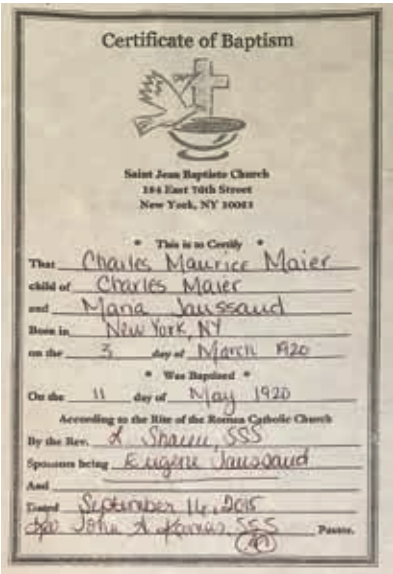 Certificate of Baptism
Saint Jean Baptiste Church
184 East 76th Street
New York, NY 10021
* This is to Certify *
That Charles Maurice Maier
child of Charles Maier
and Maria Jaussaud
Born in New York, NY
on the 3 day of March 1920
* Was Baptized *
On the 11 day of May 1920
According to the Rite of the Roman Catholic Church
By the Rev. SSS
Sponsors being Eugene Jaussaud
And
Dated September 16, 2015
John A. SSS Pastor.